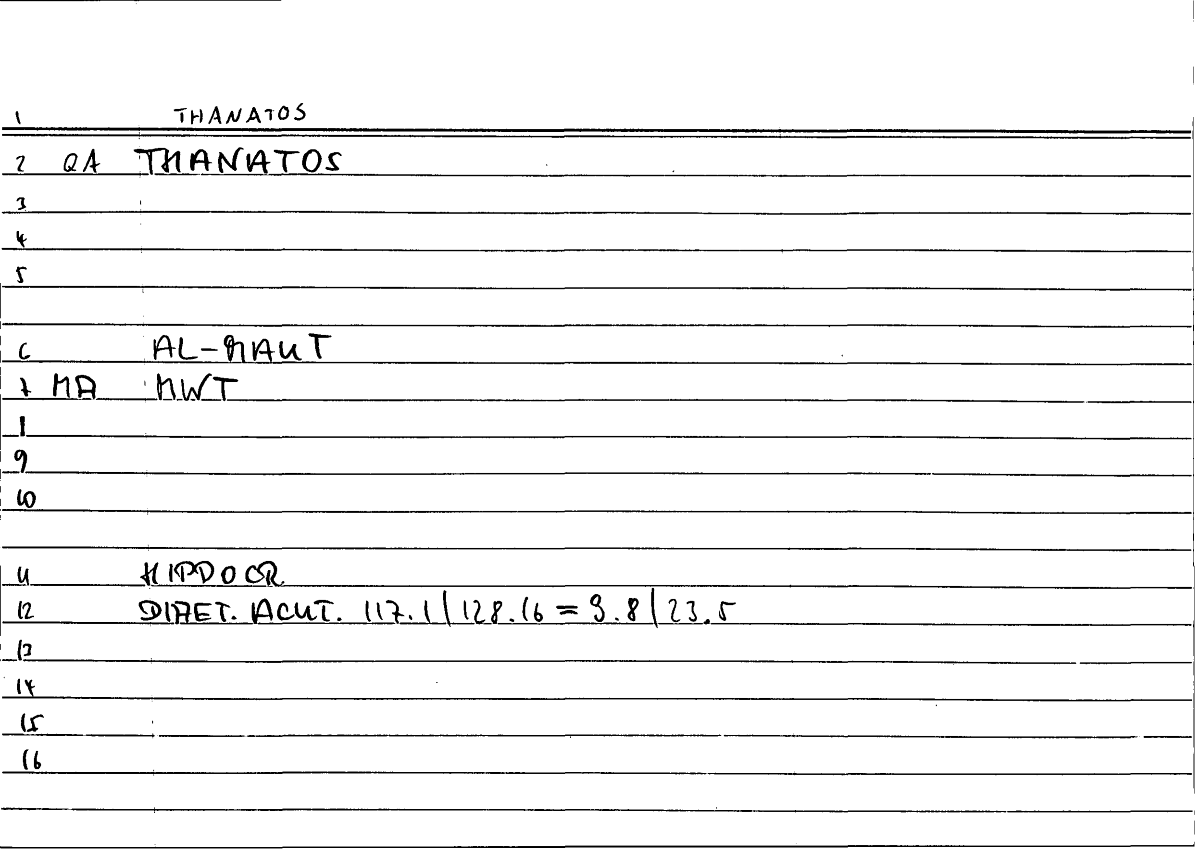 1 THANATOS
2 QA THANATOS
3
4
5
6 AL-MAUT
7 MA MWT
8
9
10
11 HIPPOCR
12 DIAET. ACUT. 117.1 | 128.16 = 9.8 | 23.5
13
14
15
16